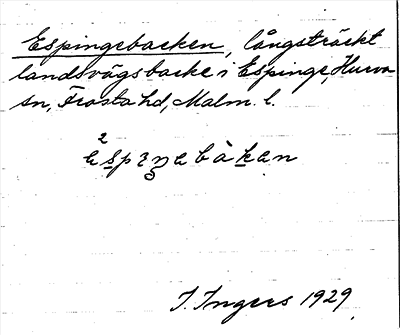 Espingebacken, långsträckt
landsvägsbacke i Espinge, Hurva
sn, Frosta hd, Malm. l.
I. Ingers 1929